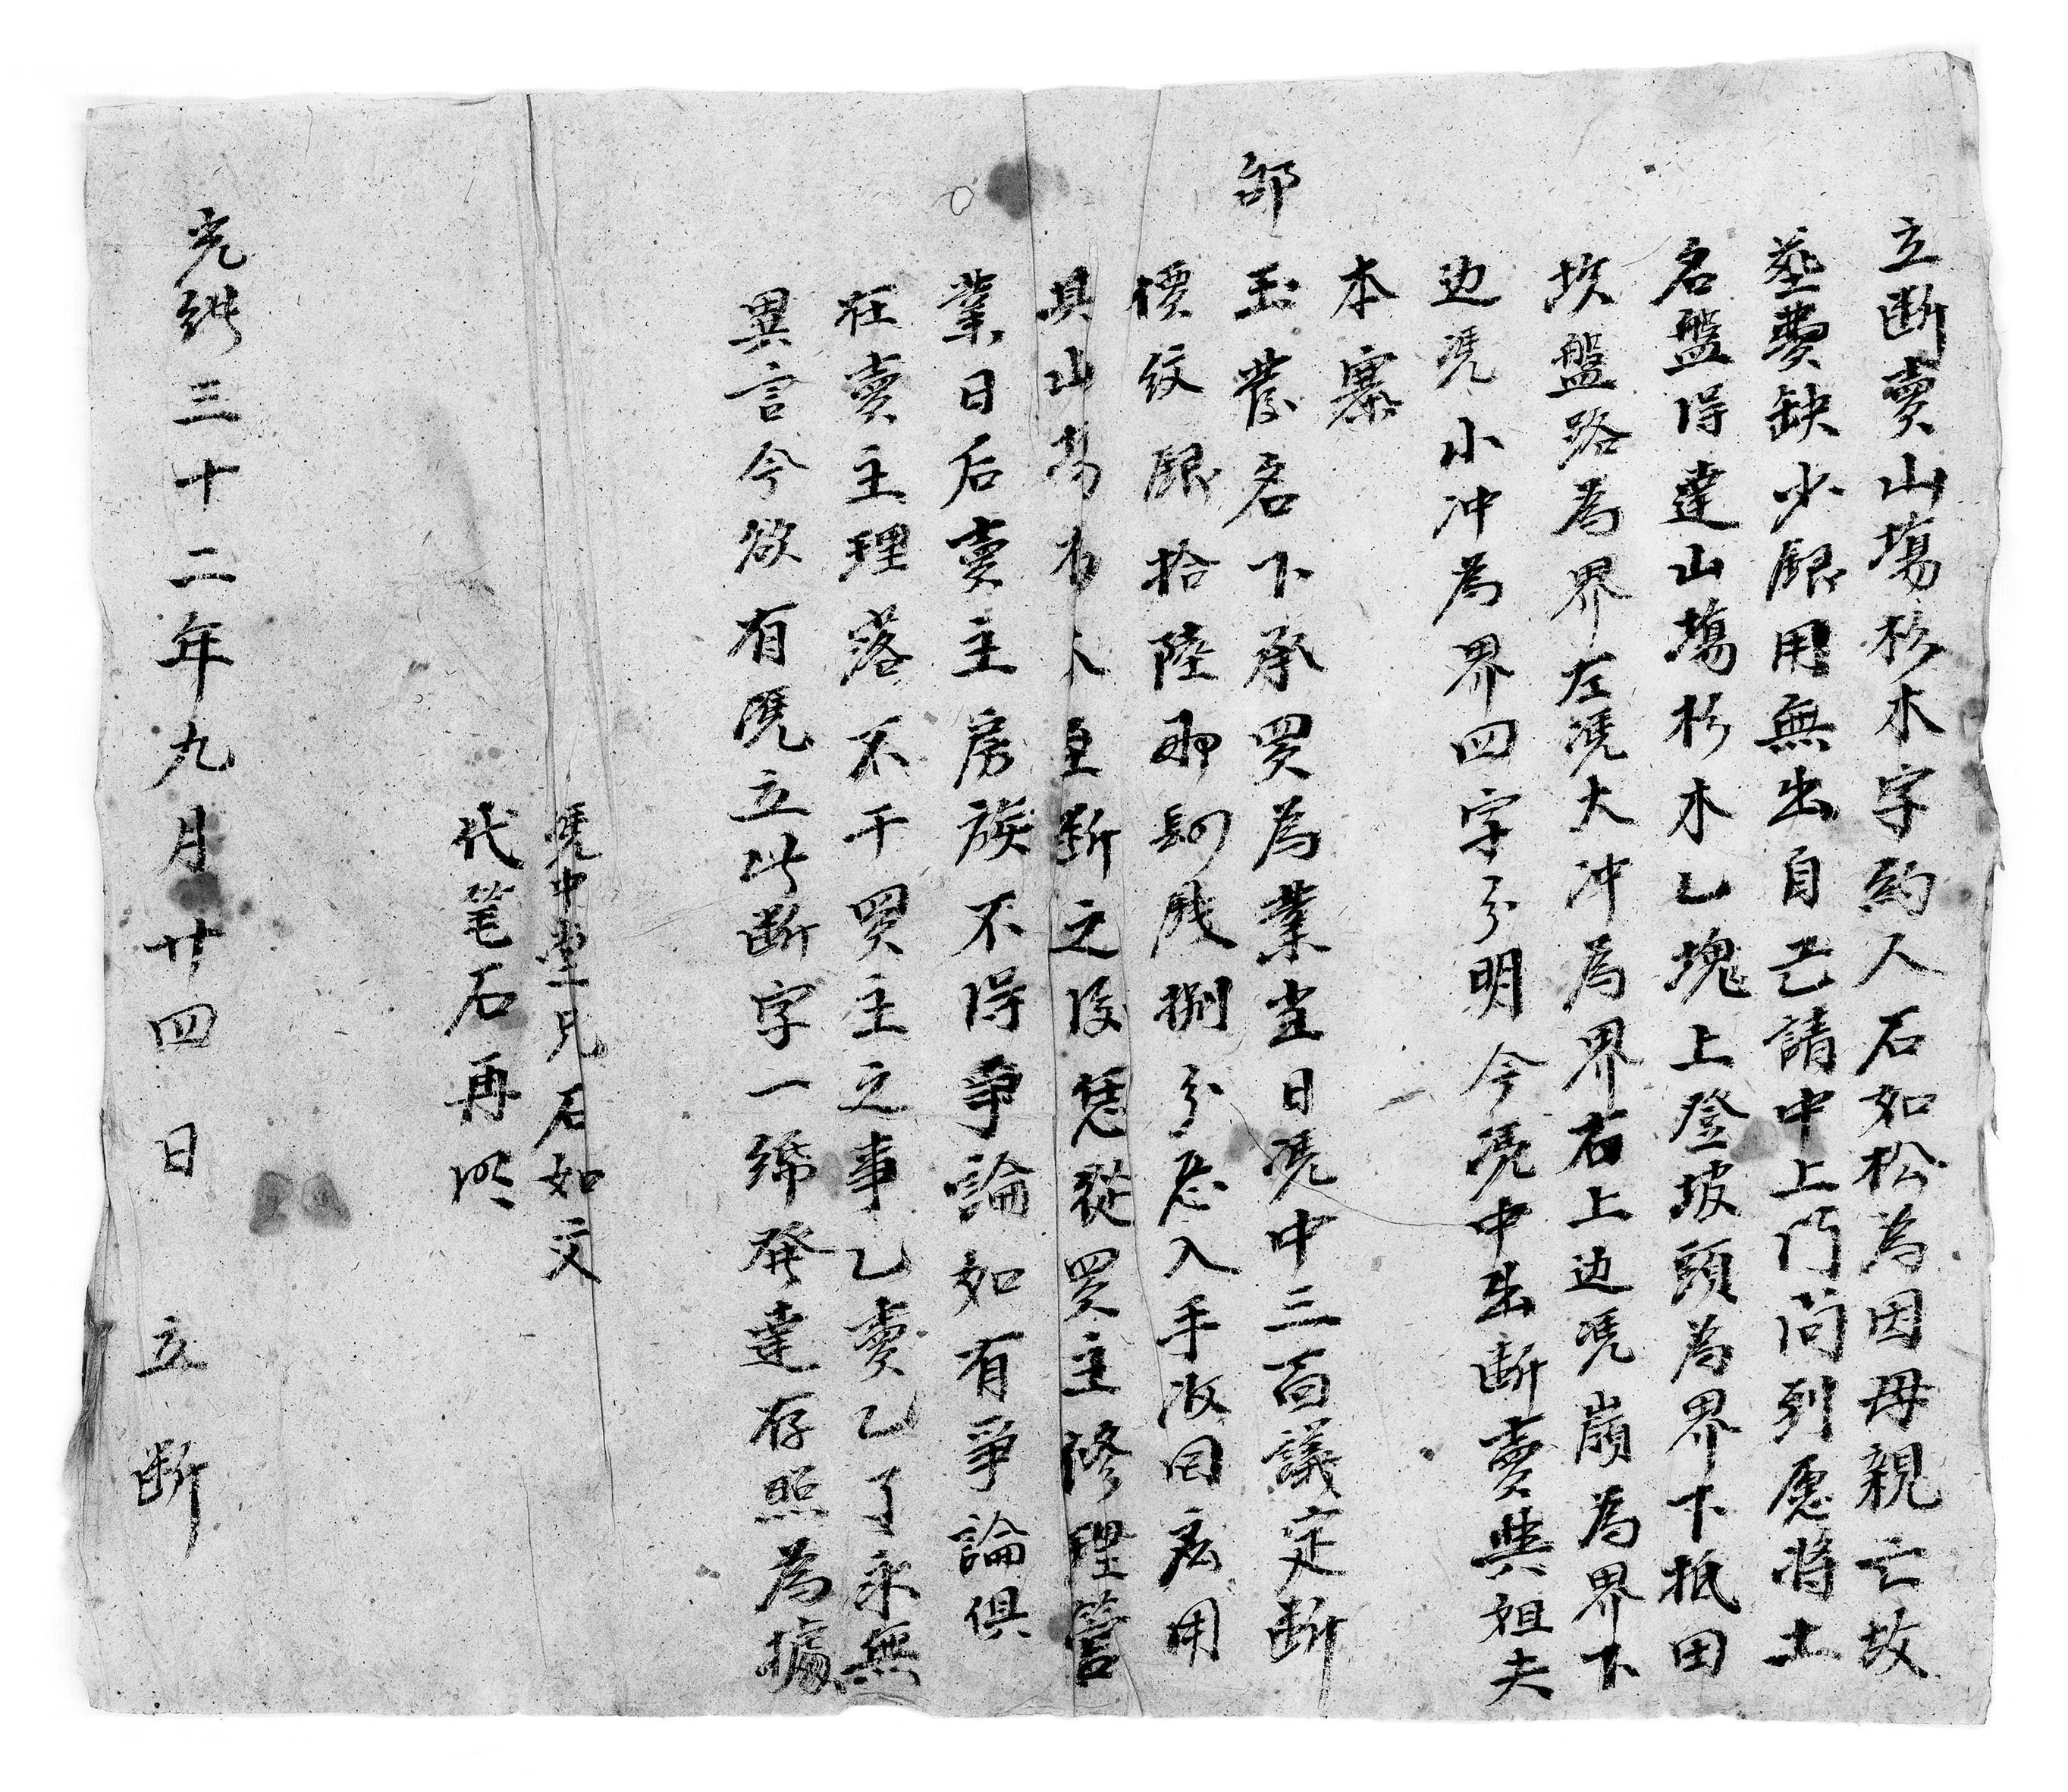 立断賣山塲杉木字約人石如松為因母親亡故
塟費缺少銀用無出自己請中上門问到愿將土
名盤得達山塲杉木乙塊上登坡頭為界下抵田
坎盤路為界左凴大冲為界右上边凴嶺為界下
边凴小冲為界四字分明今凴中出断賣與姐夫
本寨
邰玉發名下承買為業當日凴中三百議定断
價紋銀拾陸两㭍錢捌分忿入手收回应用
其山塲杉木自断之後恁從買主修理管
業日后賣主房族不得爭論如有爭論俱
在賣主理落不干買主之事乙賣乙了永無
異言今欲有凴立此断字一𥿄發達存照為據
凴中堂兄石如文
代笔石再明
光緒三十二年九月廿四日 立断